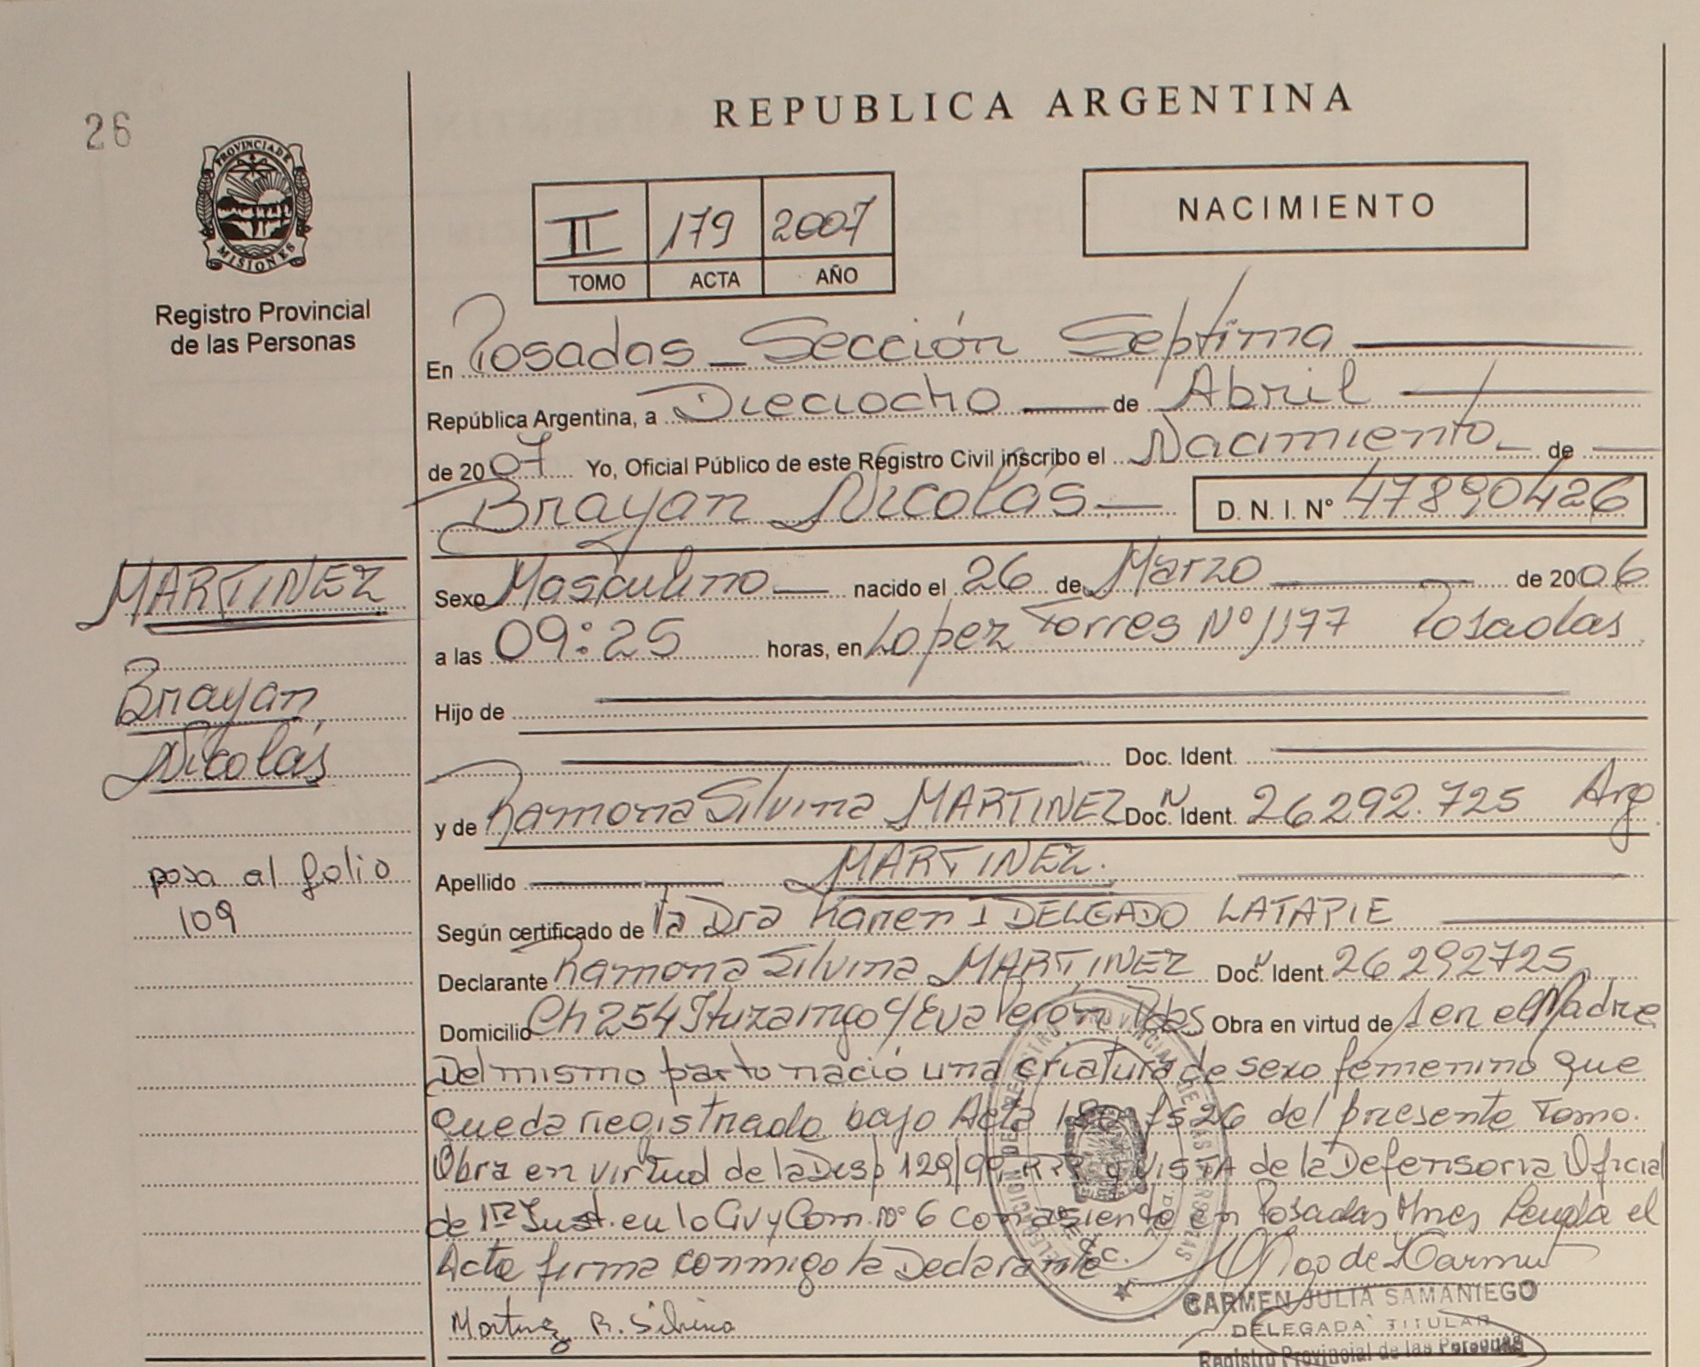 26
REPUBLICA ARGENTINA
PROVINCIA DE
MISIONES
Registro Provincial
de las Personas
II 179 2007
TOMO ACTA AÑO
NACIMIENTO
En Posadas - Sección Septima
República Argentina, a Dieciocho de Abril
de 2007 Yo, Oficial Público de este Registro Civil inscribo el Nacimiento de
Brayan Nicolás D. N. I. Nº 47890426
MARTINEZ
Brayan
Nicolás
Sexo Masculino nacido el 26 de Marzo de 2006
a las 09:25 horas, en Lopez Torres Nº 1177 Posadas
Hijo de
Doc. Ident.
y de Ramona Silvina MARTINEZ Doc. Ident. 26292.725 Arg
pasa al folio
109
Apellido MARTINEZ.
Según certificado de la Dra Karen I DELGADO LATAPIE
Declarante Ramona Silvina MARTINEZ Doc. Ident. 26292725
Domicilio Ch 254 Ituzaingo y Eva Perón Pdas Obra en virtud de ser el Madre
Del mismo parto nació una criatura de sexo femenino que
queda registrado bajo Acta fs 26 del presente Tomo.
Obra en virtud de la Disp 129/99 y VISTA de la Defensoria Oficial
de 1ra Inst. en lo Civ y Com. Nº 6 con asiento en Posadas Mnes Leyda el
Acta firma conmigo la Declarante
Martinez R. Silvina
CARMEN JULIA SAMANIEGO
DELEGADA TITULAR
Registro Provincial de las Personas